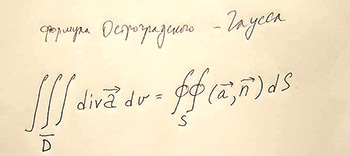 формула Остроградского – Гаусса
∭ div a⃗ dv = ∯ (a⃗, n⃗) dS
D̅ S